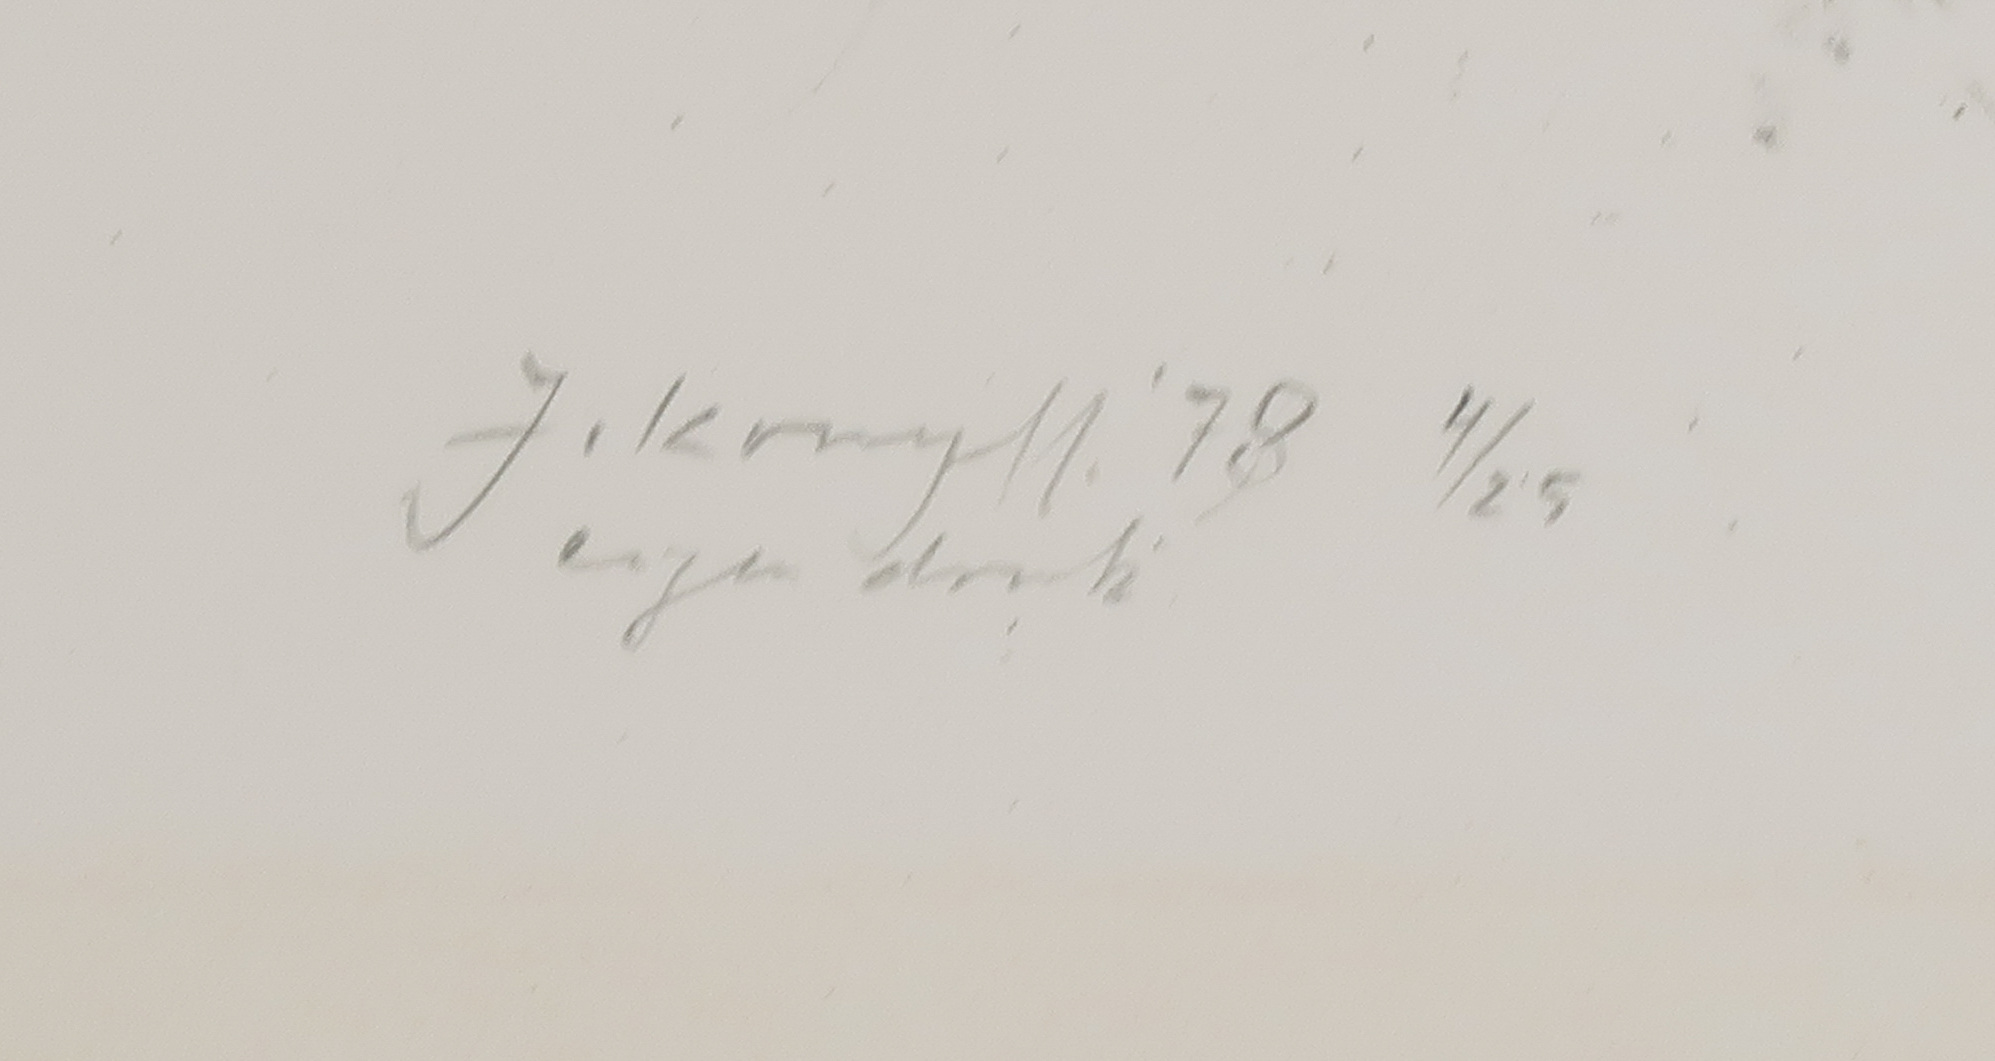 J. Kruyff. '78 4/25
eigen druk